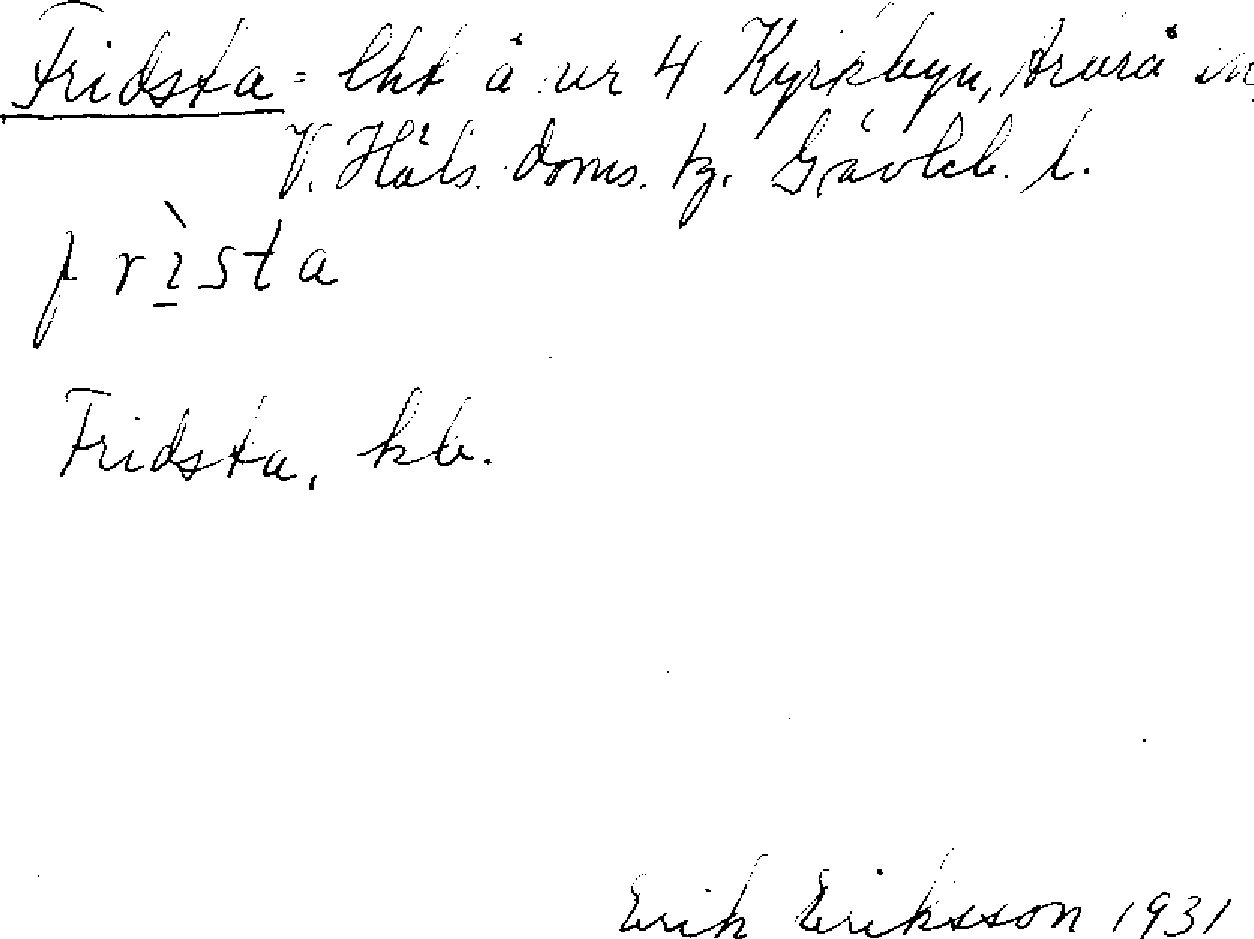 Fridsta = lht å nr 4 Kyrkbyn, Arbrå sn,
V. Häls. doms. tg. Gävleb. l.
frìsta
Fridsta, kb.
Erik Eriksson 1931